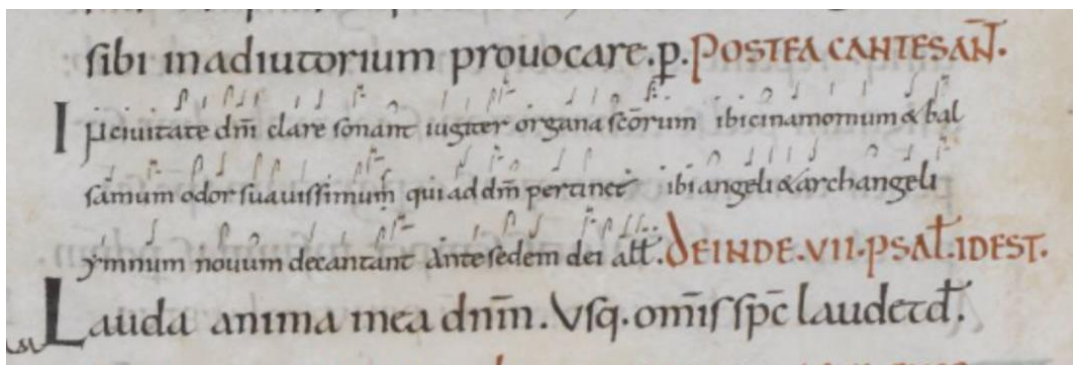 sibi inadiutorium prouocare.p. POSTEA CANTES AÑT.
In ciuitate dm̄i clare sonant iugiter organa scōrum ibi cinamomum & bal
samum odor suauissimum qui ad dm̄ pertinet ibi angeli & archangeli
ymnum nouum decantant ante sedem dei all̄. DEINDE.VII.PSAL̄.IDEST.
Lauda anima mea dnm̄. Vsq. om̄is spc̄ laudet d̄.